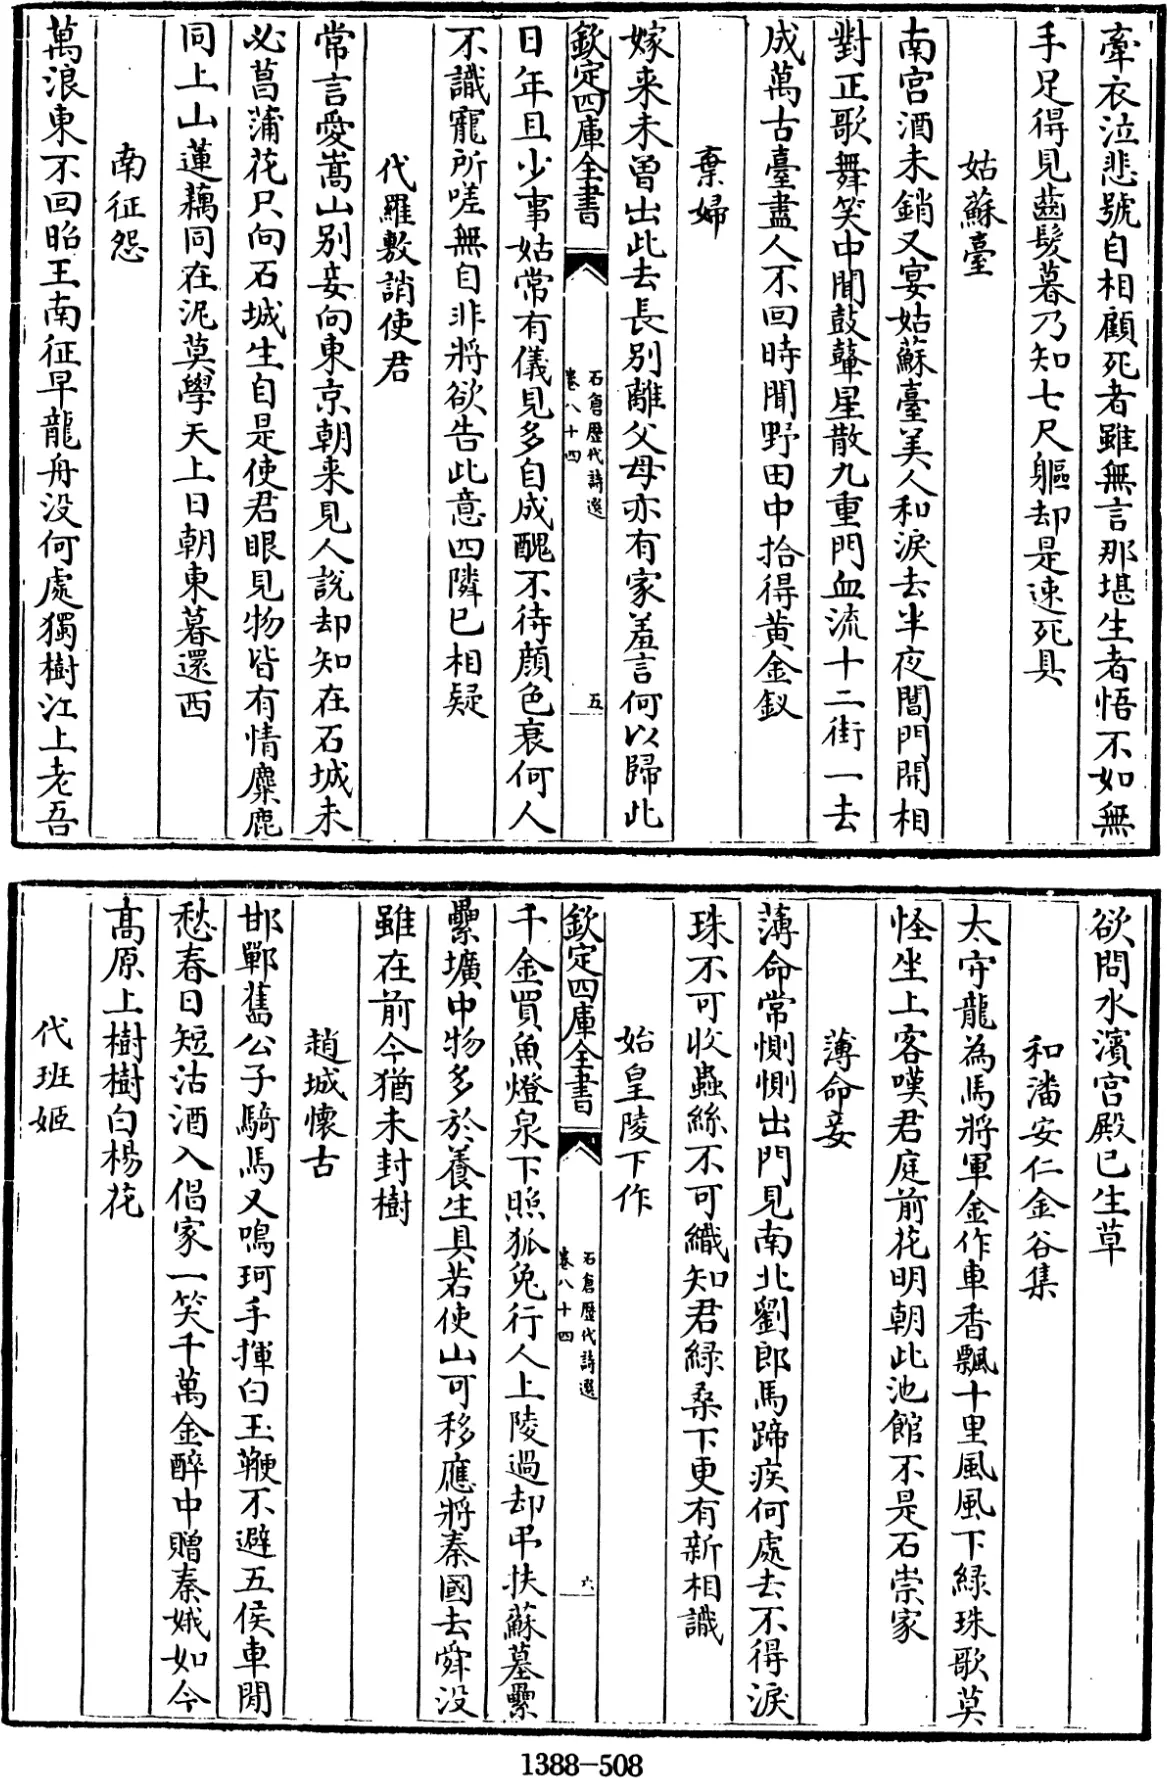 牽衣泣悲號自相顧死者雖無言那堪生者悟不如無
手足得見齒髮暮乃知七尺軀却是速死具
姑蘇臺
南宫酒未銷又宴姑蘇臺美人和淚去半夜閶門開相
對正歌舞笑中聞鼓鼙星散九重門血流十二街一去
成萬古臺盡人不回時聞野田中拾得黄金釵
棄婦
嫁来未曽出此去長别離父母亦有家羞言何以歸此
欽定四庫全書
石倉歴代詩選
卷八十四
五
日年且少事姑常有儀見多自成醜不待顔色衰何人
不識寵所嗟無自非將欲告此意四隣已相疑
代羅敷誚使君
常言愛嵩山别妾向東京朝来見人説却知在石城未
必菖蒲花只向石城生自是使君眼見物皆有情麋鹿
同上山蓮藕同在泥莫學天上日朝東暮還西
南征怨
萬浪東不回昭王南征早龍舟没何處獨樹江上老吾
欲問水濱宫殿已生草
和潘安仁金谷集
太守龍為馬將軍金作車香飄十里風風下緑珠歌莫
怪坐上客嘆君庭前花明朝此池館不是石崇家
薄命妾
薄命常惻惻出門見南北劉郎馬蹄疾何處去不得淚
珠不可收蟲絲不可織知君緑桑下更有新相識
始皇陵下作
欽定四庫全書
石倉歴代詩選
卷八十四
六
千金買魚燈泉下照狐兔行人上陵過却弔扶蘇墓纍
纍壙中物多於養生具若使山可移應將秦國去舜没
雖在前今猶未封樹
趙城懷古
邯鄲舊公子騎馬又鳴珂手揮白玉鞭不避五侯車閒
愁春日短沽酒入倡家一笑千萬金醉中贈秦娥如今
髙原上樹樹白楊花
代班姬
1388-508